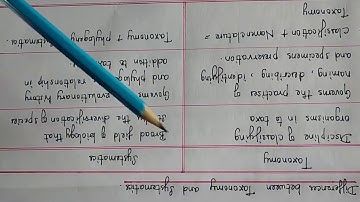 Differences between Taxonomy and Systematics.
Taxonomy
Systematics
Discipline of classifying
organisms in to taxa
Broad field of biology that
the diversification of species
Governs the practices of
naming, describing, identifying
and specimens preservation.
Governs evolutionary history
and phylogenetic relationship in
addition to
Classification + Nomenclature =
Taxonomy
Taxonomy + phylogeny
Systematics.